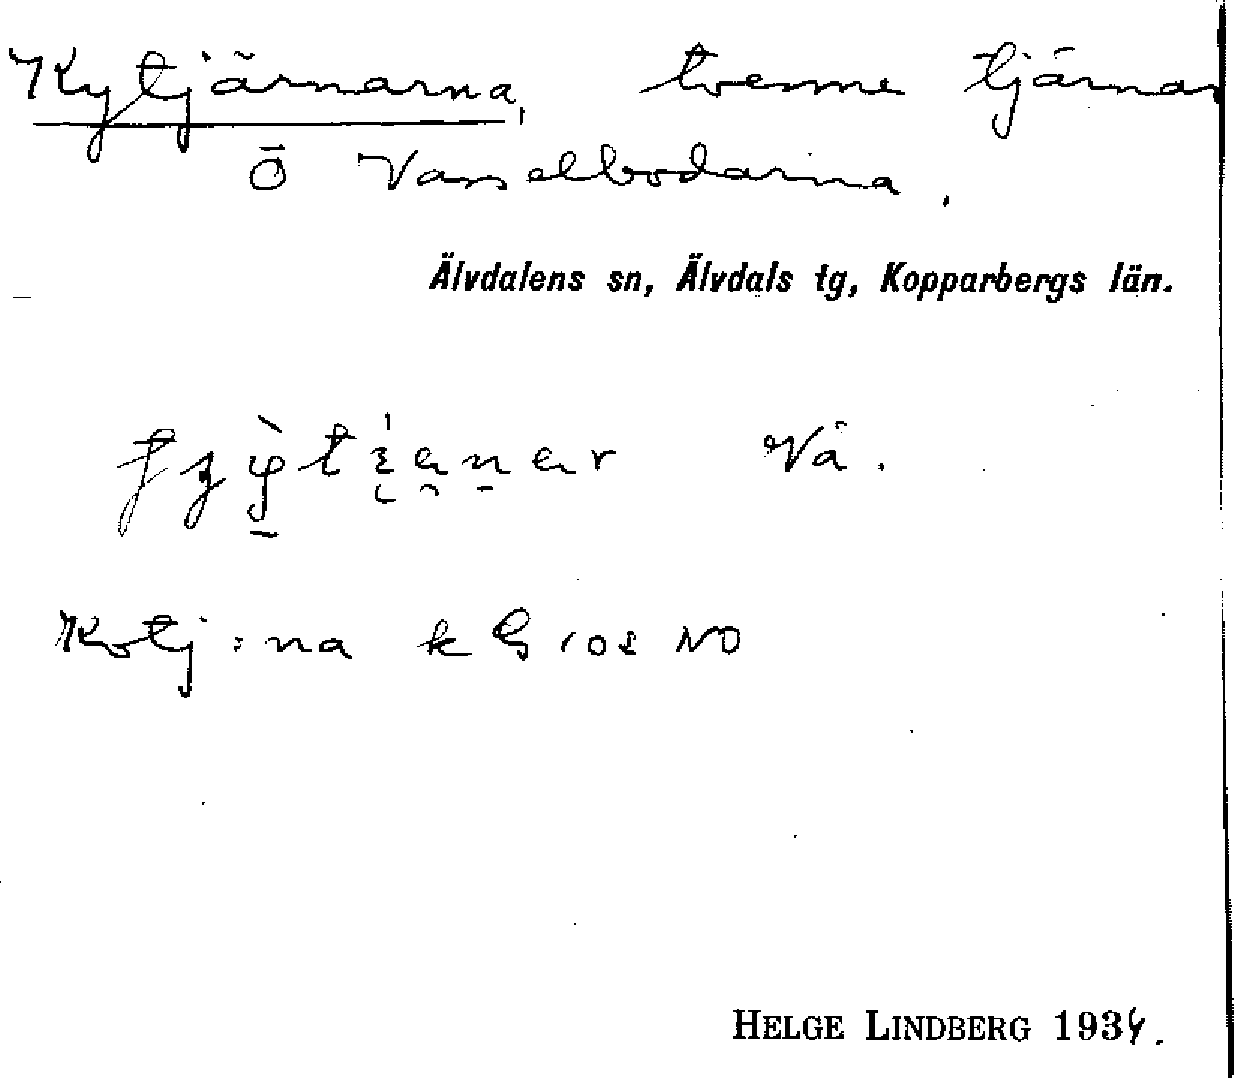 Kytjärnarna, tvenne tjärnar
Ö Vasselbodarna.
Älvdalens sn, Älvdals tg, Kopparbergs län.
Vå.
Kotj:na k G 108 NO
HELGE LINDBERG 1934.